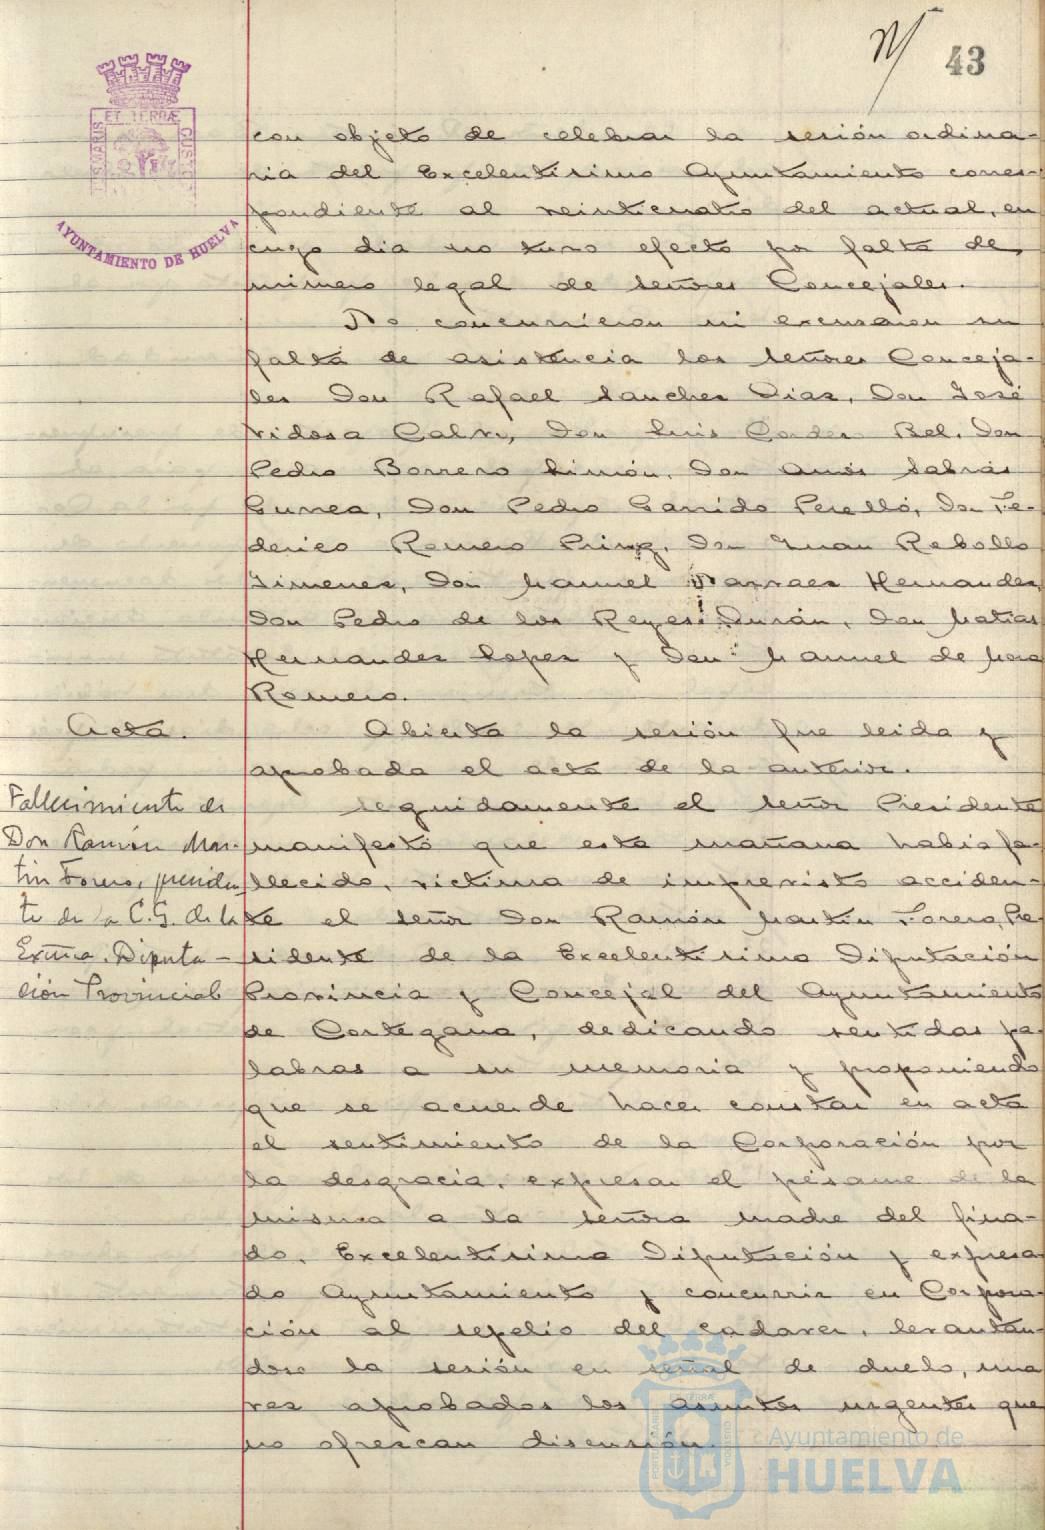 43
ET TERRÆ
AYUNTAMIENTO DE HUELVA
con objeto de celebrar la sesión ordina-
ria del Excelentisimo Ayuntamiento corres-
pondiente al veinticuatro del actual, en
cuyo dia no tuvo efecto por falta de
número legal de señores Concejales.
No concurrieron ni excusaron su
falta de asistencia los señores Conceja-
les Don Rafael Sanchez Diaz, Don José
Vidosa Calvo, Don Luis Cordero Bel, Don
Pedro Borrero Limón, Don Amós Sabrás
Gurrea, Don Pedro Garrido Perelló, Don Fe-
derico Romero Don Juan Rebollo
Jimenez, Don Manuel Narraez Hernandez
Don Pedro de los Reyes Durán, Don Matias
Hernandez Lopez y Don Manuel de Mora
Romero.
Acta.
Abierta la sesión fue leida y
aprobada el acta de la anterior.
Fallecimiento de
Don Ramón Mar-
tin Forero, presiden
te de la C.G. de la
Exma. Diputa-
ción Provincial
Seguidamente el señor Presidente
manifestó que esta mañana habia fa-
llecido, victima de imprevisto acciden-
te el señor Don Ramón Martin Forero, Pre-
sidente de la Excelentisima Diputación
Provincia y Concejal del Ayuntamiento
de Cortegana, dedicando sentidas pa-
labras a su memoria y proponiendo
que se acuerde hacer constar en acta
el sentimiento de la Corporación por
la desgracia, expresar el pésame de la
misma a la señora madre del fina-
do, Excelentisima Diputación y expresa
do Ayuntamiento y concurrir en Corpora-
ción al sepelio del cadaver, levantan-
dose la sesión en señal de duelo, una
vez aprobados los asuntos urgentes que
no ofrezcan discusión.
Ayuntamiento de
HUELVA